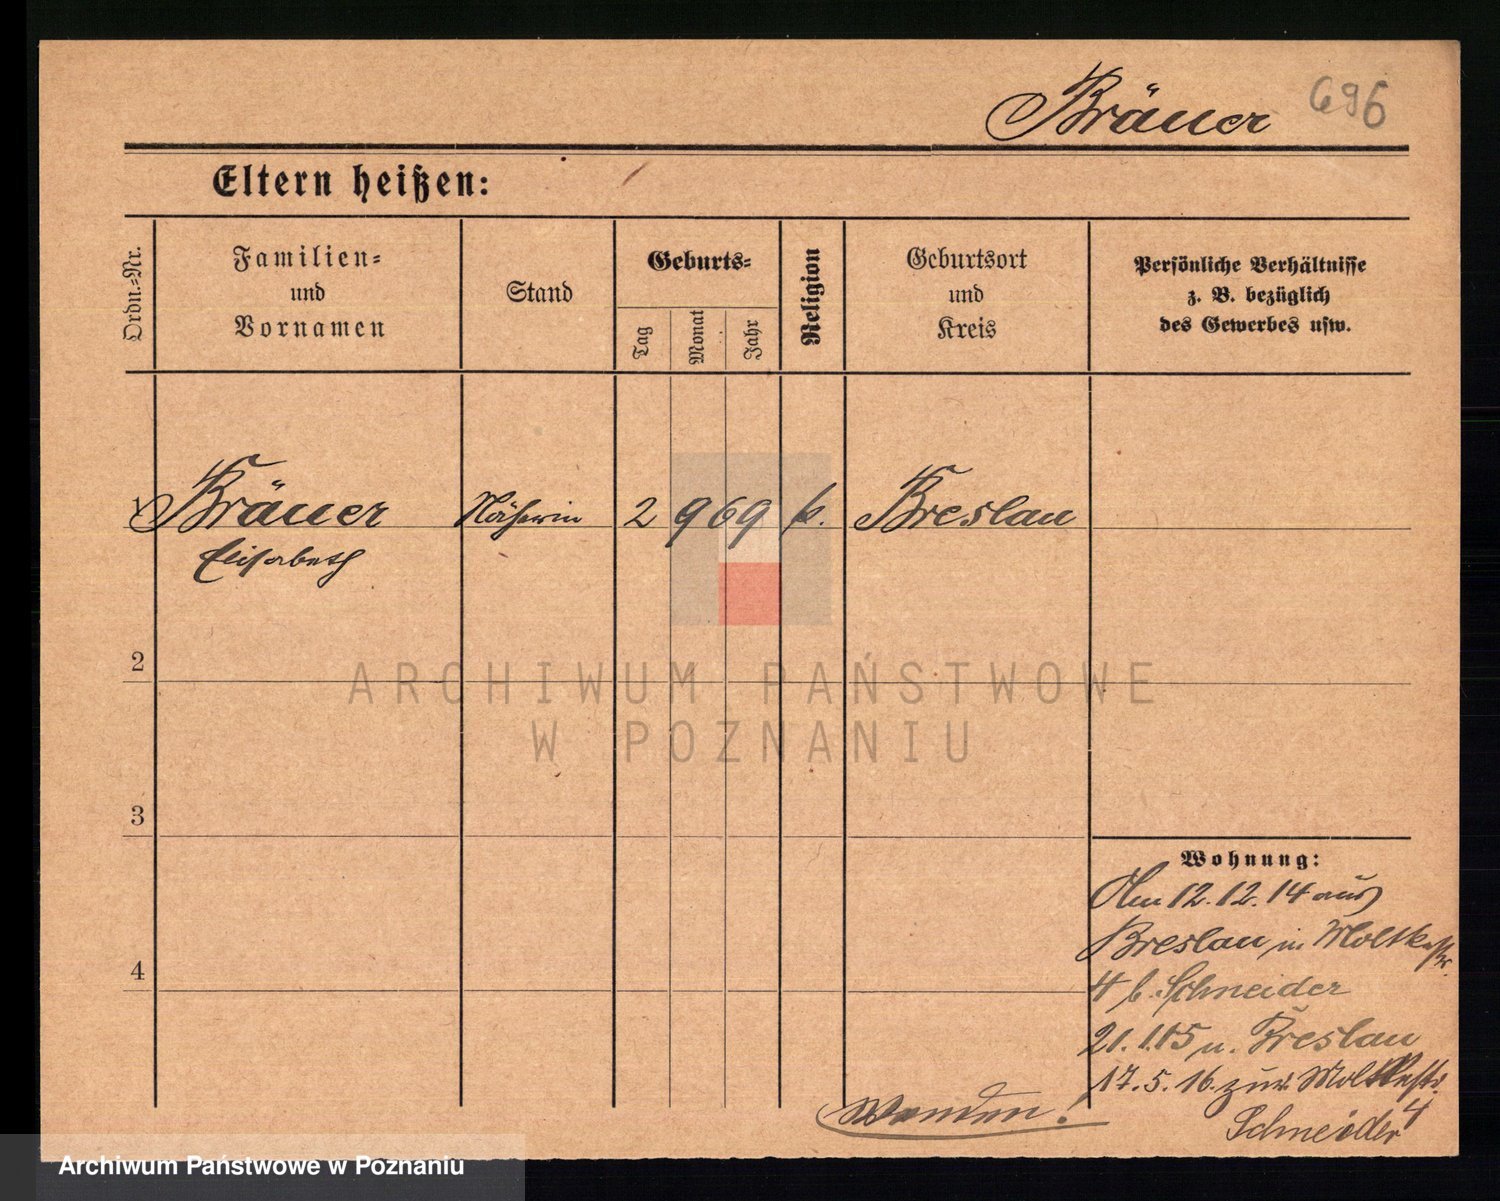 Bräuer 696
Eltern heißen:
Ordn.=Nr.
Familien=
und
Vornamen
Stand
Geburts=
Tag
Monat
Jahr
Religion
Geburtsort
und
Kreis
Persönliche Verhältnisse
z. B. bezüglich
des Gewerbes usw.
1 Bräuer Näherin 2 9 69 k. Breslau
Elisabeth
2
3
4
Wohnung:
Am 12.12.14 aus
Breslau in Moltkestr.
4 b. Schneider
21.1.15 n. Breslau
17.5.16 zur. Moltkestr.
4
Schneider
Wenden!
ARCHIWUM PAŃSTWOWE
W POZNANIU
Archiwum Państwowe w Poznaniu